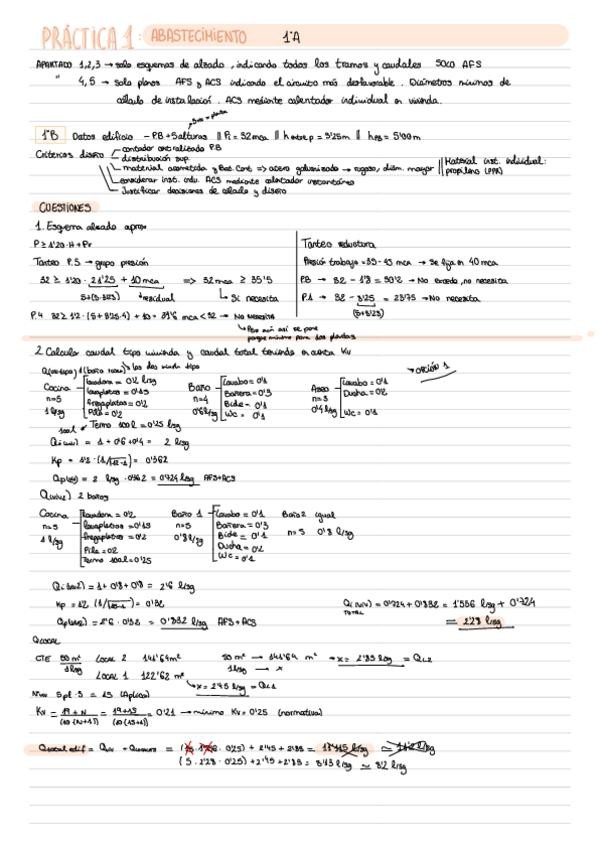 PRÁCTICA 1: ABASTECIMIENTO 1ºA
APARTADO 1,2,3 → solo esquemas de alzado, indicando todos los tramos y caudales SOLO AFS
" 4,5 → solo planos AFS y ACS indicando el circuito más desfavorable. Diámetros mínimos de
cálculo de instalación. ACS mediante calentador individual en vivienda.
1ºB Datos edificio - PB + 5 alturas || Pi = 32mca || h entre p = 3'25m || h PB = 5'00m
Criterios diseño
contador centralizado PB
distribución sup.
material acometida y Bat. Cont => acero galvanizado → rugoso, diám. mayor || Material inst. individual:
propileno (PPR)
considerar inst. indiv. ACS mediante calentador instantáneo
Justificar decisiones de cálculo y diseño
CUESTIONES
1. Esquema alzado aprox
P ≥ 1'20·H + Pr
Tanteo P.5 → grupo presión
32 ≥ 1'20 · 21'25 + 10 mca => 32 mca ≥ 35'5
residual
Si necesita
P.4 32 ≥ 1'2 · (5+3'25·4) + 10 = 31'6 mca < 32 → No necesita
Tanteo reductora
Presión trabajo = 35-45 mca → Se fija en 40 mca
PB → 32 - 1'8 = 30'2 → No excede, no necesita
P.1 → 32 - 8'25 = 23'75 → No necesita
(5+3'25)
2. Calculo caudal tipo vivienda y caudal total teniendo en cuenta Kv
→ OPCIÓN 1
Cocina
n=5
1 l/sg
lavadora = 0'2 l/sg
lavaplatos = 0'15
fregaplatos = 0'2
Pila = 0'2
Termo 100 l = 0'25 l/sg
Baño
n=4
0'6 l/sg
Lavabo = 0'1
Bañera = 0'3
Bide = 0'1
WC = 0'1
Aseo
n=3
0'4 l/sg
Lavabo = 0'1
Ducha = 0'2
WC = 0'1
= 1 + 0'6 + 0'4 = 2 l/sg
= 0'362
= 2 l/sg · 0'362 = 0'724 l/sg AFS+ACS
2 baños
Cocina
n=5
1 l/sg
lavadora = 0'2
lavaplatos = 0'15
fregaplatos = 0'2
Pila = 0'2
Termo 100 l = 0'25
Baño 1
n=5
0'8 l/sg
Lavabo = 0'1
Bañera = 0'3
Bide = 0'1
Ducha = 0'2
WC = 0'1
Baño 2 igual
n=5 0'8 l/sg
= 1 + 0'8 + 0'8 = 2'6 l/sg
= 0'32
= 2'6 · 0'32 = 0'832 l/sg AFS+ACS
TOTAL = 0'724 + 0'832 = 1'556 l/sg + 0'724
= 2'28 l/sg
Q LOCAL
CTE 50 m²
1 l/sg
LOCAL 2 141'64 m²
LOCAL 1 122'62 m²
50 m² → 141'64 m²
1 l/sg → x
→ x = 2'83 l/sg = QL2
→ x = 2'45 l/sg = QL1
5 pl · 3 = 15 (Aplica)
Kv = 19+N / (10(N+1)) = 19+15 / (10(15+1)) = 0'21 → mínimo Kv = 0'25 (normativa)
(5 · 2'28 · 0'25) + 2'45 + 2'83 = 8'13 l/sg ≃ 8'2 l/sg